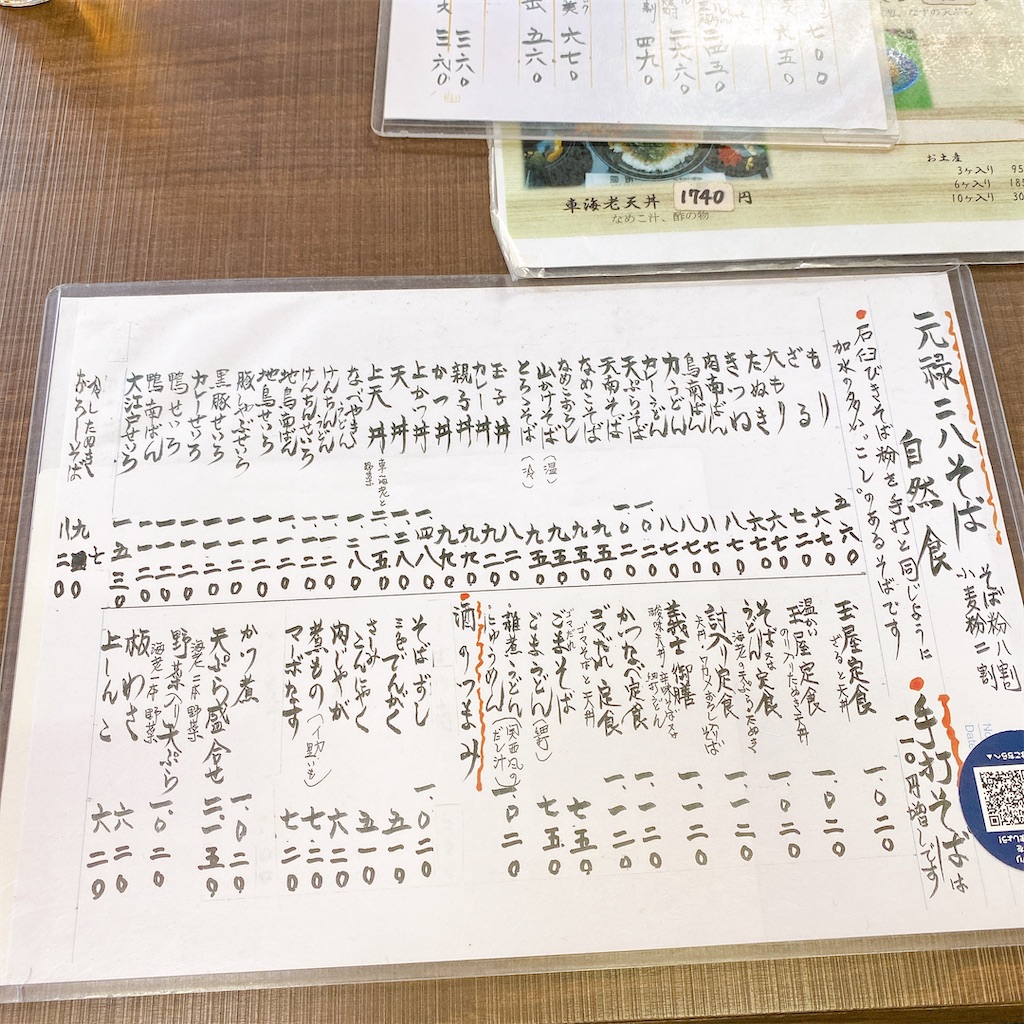 元禄二八そば
そば粉八割
小麦粉二割
自然食
石臼びきそば粉を手打と同じように
加水の多い、“こし”のあるそばです
手打そばは
二一〇円増しです
もり 五六〇
ざる 六七〇
大もり 七二〇
たぬき 六七〇
きつね 六七〇
肉南ばん 八七〇
鳥南ばん 八一〇
力うどん 八七〇
カレーうどん 八七〇
天ぷらそば 一、〇二〇
天南そば 一、〇二〇
なめこそば 九五〇
なめこおろし 九五〇
山かけそば(温) 九五〇
とろろそば(冷) 九五〇
玉子丼 八二〇
カレー丼 九二〇
親子丼 九九〇
かつ丼 九九〇
上かつ丼 一、四八〇
天丼 一、二八〇
上天丼 車海老と野菜 二、一五〇
なべやきうどん 一、二八〇
けんちんうどん 一、一二〇
けんちんせいろ 一、一二〇
地鳥南ばん 一、一二〇
地鳥せいろ 一、一二〇
豚しゃぶせいろ 一、一二〇
黒豚せいろ 一、一二〇
カレーせいろ 一、一二〇
鴨せいろ 一、一二〇
鴨南ばん 一、一二〇
大江戸せいろ 一、五三〇
冷したぬき 九七〇
おろしそば 八二〇
玉屋定食 ざると天丼 一、〇二〇
温かい玉屋定食 のり入りたぬきと天丼 一、〇二〇
そば又はうどん定食 海老の天ぷらとたぬき 一、〇二〇
討入り定食 天丼・わさびおろしそば 一、一二〇
義士御膳 一、一二〇
かつなべ定食 一、一二〇
ゴマだれ定食 ゴマそばと天丼 一、一二〇
ゴマだれ
ごまそば 七五〇
ごまうどん(細打) 七五〇
雑煮うどん
にゅうめん(関西風のだし汁) 一、〇二〇
酒のつまみ
そばずし 一、〇二〇
三色でんがく 五一〇
さしみこんにゃく 五一〇
肉じゃが 六二〇
煮もの(八ツ頭いも) 七二〇
マーボなす 七二〇
かつ煮 一、〇二〇
天ぷら盛合せ 海老二本 野菜 二、一五〇
野菜入り天ぷら 海老一本 野菜 一、〇二〇
板わさ 六二〇
上しんこ 六二〇
車海老天丼 1740 円
なめこ汁、酢の物
お土産
3ヶ入り 95
6ヶ入り 185
10ヶ入り 30
七〇〇
九五〇
三四五〇
二六六〇
四九〇
六七〇
五六〇
三六〇
三六〇